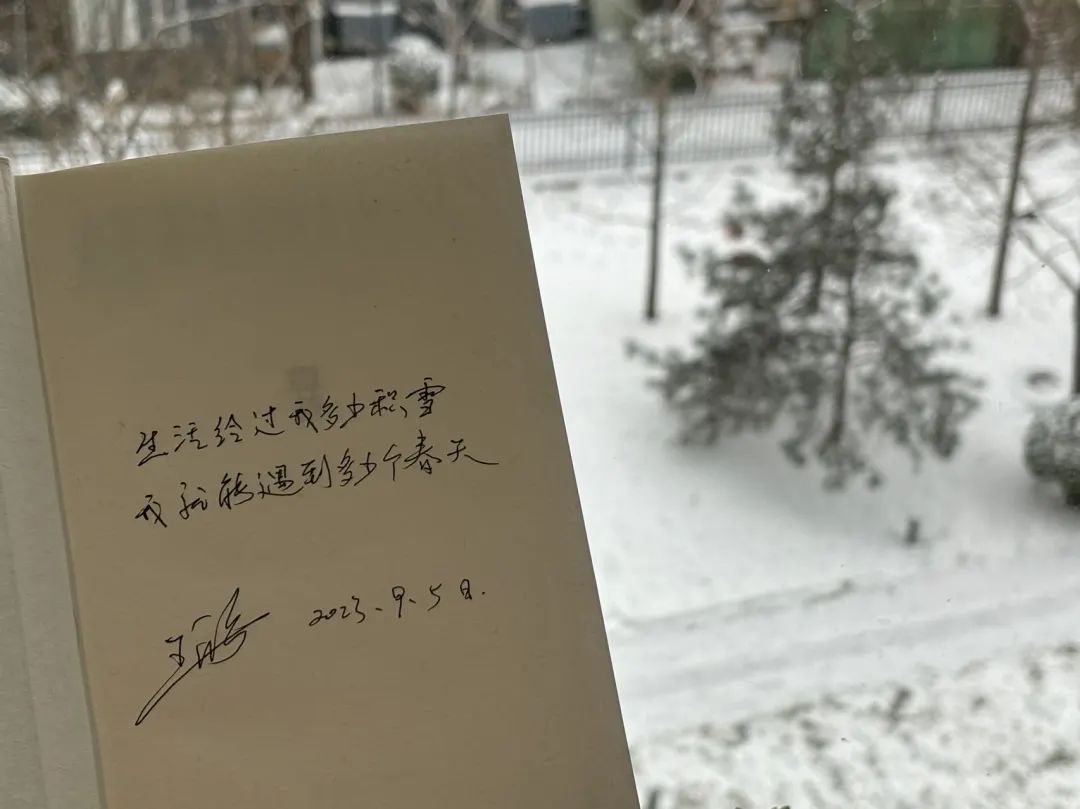 生活给过我多少积雪
我就能遇到多少个春天
2023.9.5日.